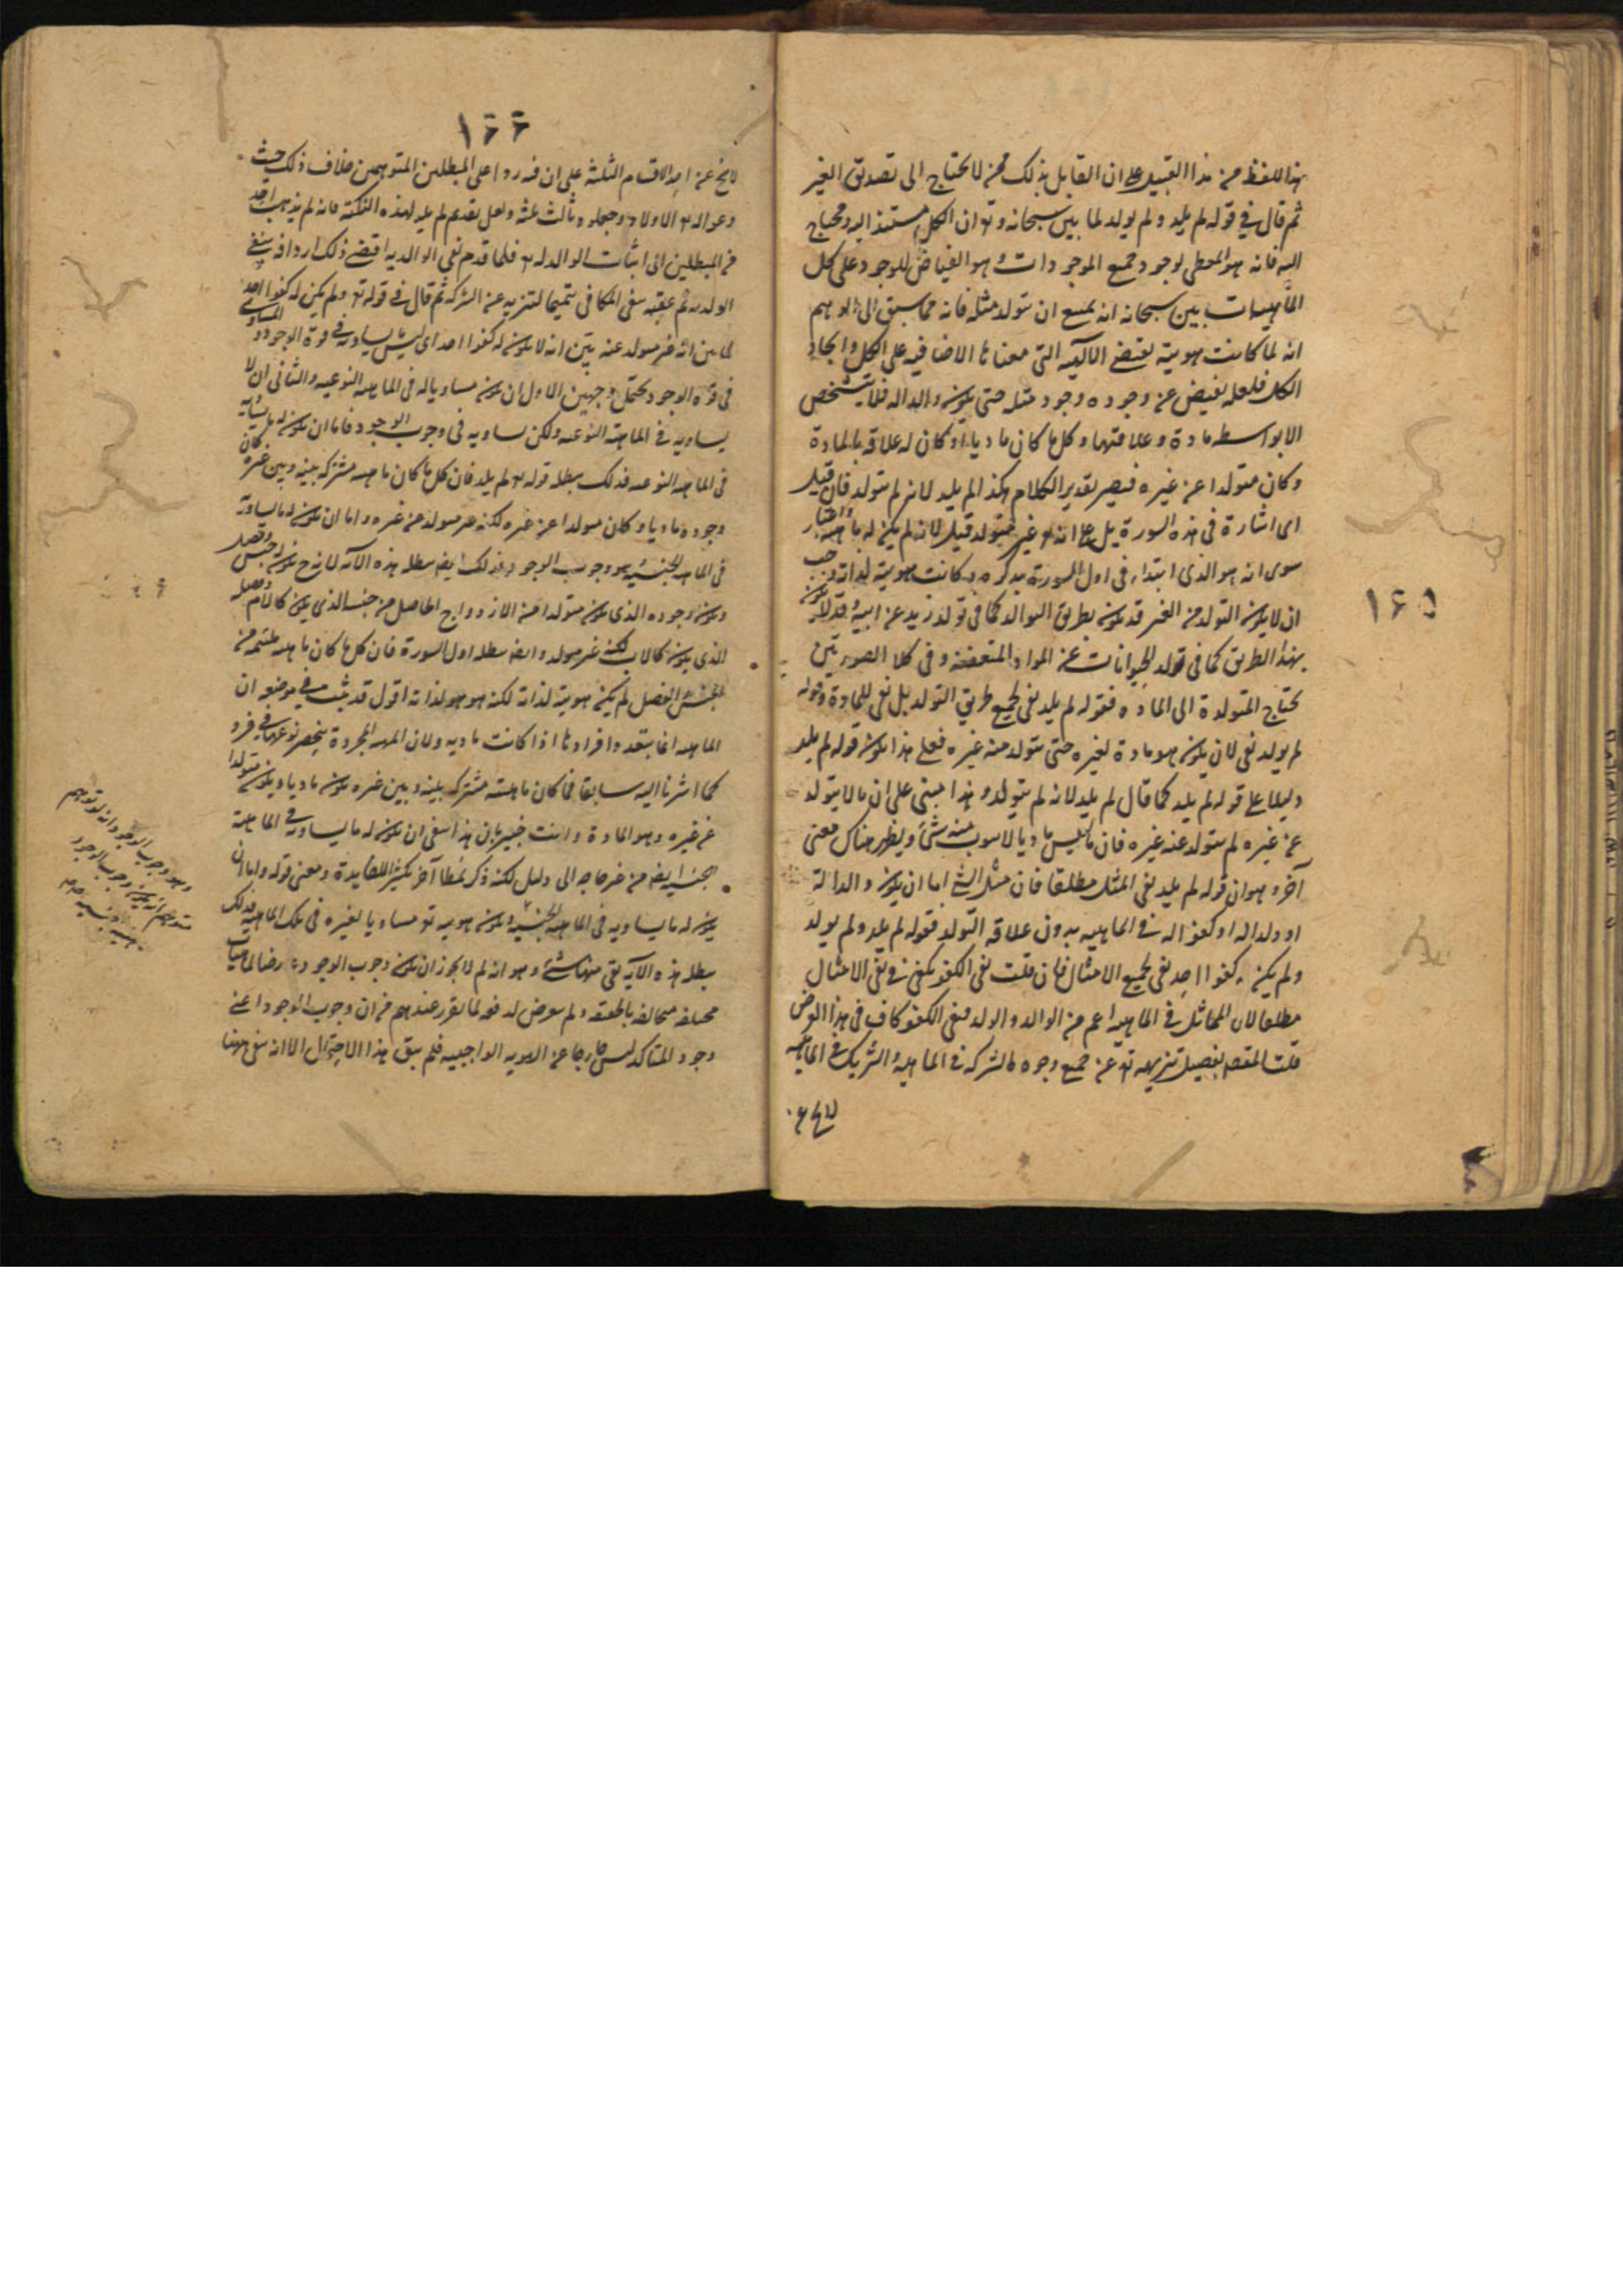 ١٦٥
بهذا اللفظ من هذا القبيل على ان القايل بذلك ممن لا يحتاج الى تصديق الغير
ثم قال في قوله لم يلد ولم يولد لما بين سبحانه وتع ان الكل مستند اليه ومحتاج
اليه فانه هو المعطى لوجود جميع الموجودات وهو الفياض للوجود على كل
الماهيات بين سبحانه انه يمتنع ان يتولد مثله فانه مما يسبق الى الوهم
انه لما كانت هويته يقتضى الالهية التى معناها الافاضة على الكل وايجاد
الكل فلعله يفيض عن وجوده وجود مثله حتى يكون والدا له فلا يتشخص
الا بواسطه مادة وعلاقتها وكل ما كان ماديا او كان له علاقه بالمادة
وكان متولدا عن غيره فيصير تقدير الكلام هكذا لم يلد لانه لم يتولد فان قيل
اى اشارة فى هذه السورة يدل على انه تع غير متولد قيل لانه لم يكن له ماهية واعتبار
سوى انه هو الذى ابتداء فى اول السورة بذكره وكانت هويته لذاته وجب
ان لا يكون التولد من الغير قد يكون بطريق التوالد كما فى تولد زيد عن ابيه وقد لا يكون
بهذا الطريق كما فى تولد الحيوانات عن المواد المتعفنة وفى كلا الصورتين
يحتاج المتولدة الى المادة فقوله لم يلد نفى لجميع طريق التولد بل نفى للمادة وقوله
لم يولد نفى لان يكون هو مادة لغيره حتى يتولد منه غيره فعلى هذا يكون قوله لم يلد
دليلا على قوله لم يلد كما قال لم يلد لانه لم يتولد وهذا مبنى على ان ما لا يتولد
عن غيره لم يتولد عنه غيره فان ما ليس ماديا لا منه شئ ويظهر هناك معنى
آخر وهو ان قوله لم يلد نفى المثل مطلقا فان مثل الشئ اما ان يكون والدا له
او ولدا له او كفوا له فى الماهيه بدون علاقه التولد فقوله لم يلد ولم يولد
ولم يكن له كفوا احد نفى لجميع الامثال فان قلت نفى الكفو يكفى فى نفى الامثال
مطلقا لان المماثل فى الماهيه اعم من الوالد والولد فنفى الكفو كاف فى هذا الغرض
قلت المقصود تفصيل تنزيهه تع عن جميع وجوه الشركه فى الماهيه والشريك فى الماهيه
١٦٦
لا يخ عن احد الاقسام الثلثة على ان فيه ردا على المبطلين المتوهمين خلاف ذلك حيث
دعوا له تع الاولاد وجعلوه ثالث ثلثه ولعل تقديم لم يلد لهذه النكتة فانه لم يذهب احد
من المبطلين الى اثبات الوالد له تع فلما قدم نفى الوالديه اقتضى ذلك اردافه بنفى
الولديه ثم عقبه بنفى المكافى تتميما لتنزيهه عن الشركه ثم قال فى قوله تع ولم يكن له كفوا احد
لما بين انه غير متولد عنه بين انه لا يكون له كفوا احد اى ليس يساويه فى قوة الوجود والمساوى
فى قوة الوجود يحتمل وجهين الاول ان يكون مساويا له فى الماهيه النوعيه والثانى ان لا
يساويه فى الماهيه النوعيه ولكن يساويه فى وجوب الوجود فاما ان يكون له ما يساويه
فى الماهيه النوعيه فذلك يبطله قوله تع لم يلد فان كل ما كان ماهيته مشتركه بينه وبين غيره كان
وجوده ماديا وكان متولدا عن غيره لكنه غير متولد عن غيره واما ان يكون له ما يساويه
فى الماهيه الجنسيه وهو وجوب الوجود فذلك ايضا يبطله هذه الآيه لانه ح يكون له جنس وفصل
ويكون وجوده الذى يكون متولدا من الازدواج الحاصل من جنسه الذى يكون كالام وفصله
الذى يكون كالاب لكنه غير متولد وايضا يبطله اول السورة فان كل ما كان ماهيته ملتئمه من
الجنس والفصل لم يكن هويته لذاته لكنه هو هو لذاته اقول قد ثبت فى موضعه ان
الماهيه انما يتعدد افرادها اذا كانت ماديه ولان الماهيه المجردة ينحصر نوعها فى فرد
كما اشرنا اليه سابقا فما كان ماهيته مشتركه بينه وبين غيره يكون ماديا ويكون متولدا
عن غيره وهو المادة وانت خبير بان هذا ينفى ان يكون له ما يساويه فى الماهية
الجنسيه ايضا من غير حاجه الى دليل لكنه ذكر نمطا آخر تكثيرا للفايدة ومعنى قوله واما ان
يكون له ما يساويه فى الماهيه الجنسيه ويكون هويته تع مساويا لغيره فى تلك الماهيه فذلك
يبطله هذه الآيه بقى ههنا شئ وهو انه لم لا يجوز ان يكون وجوب الوجود عارضا لماهيات
مختلفه متخالفه بالحقيقه ولم يتعرض لدفعه لما تقرر عندهم من ان وجوب الوجود اعنى
وجود المتاكد ليس خارجا عن الهويه الواجبيه فلم يبق هذا الاحتمال الا انه بقى ههنا
وهو وجوب الوجود انه لو توهم
متوهم انه يكون وجوب الوجود